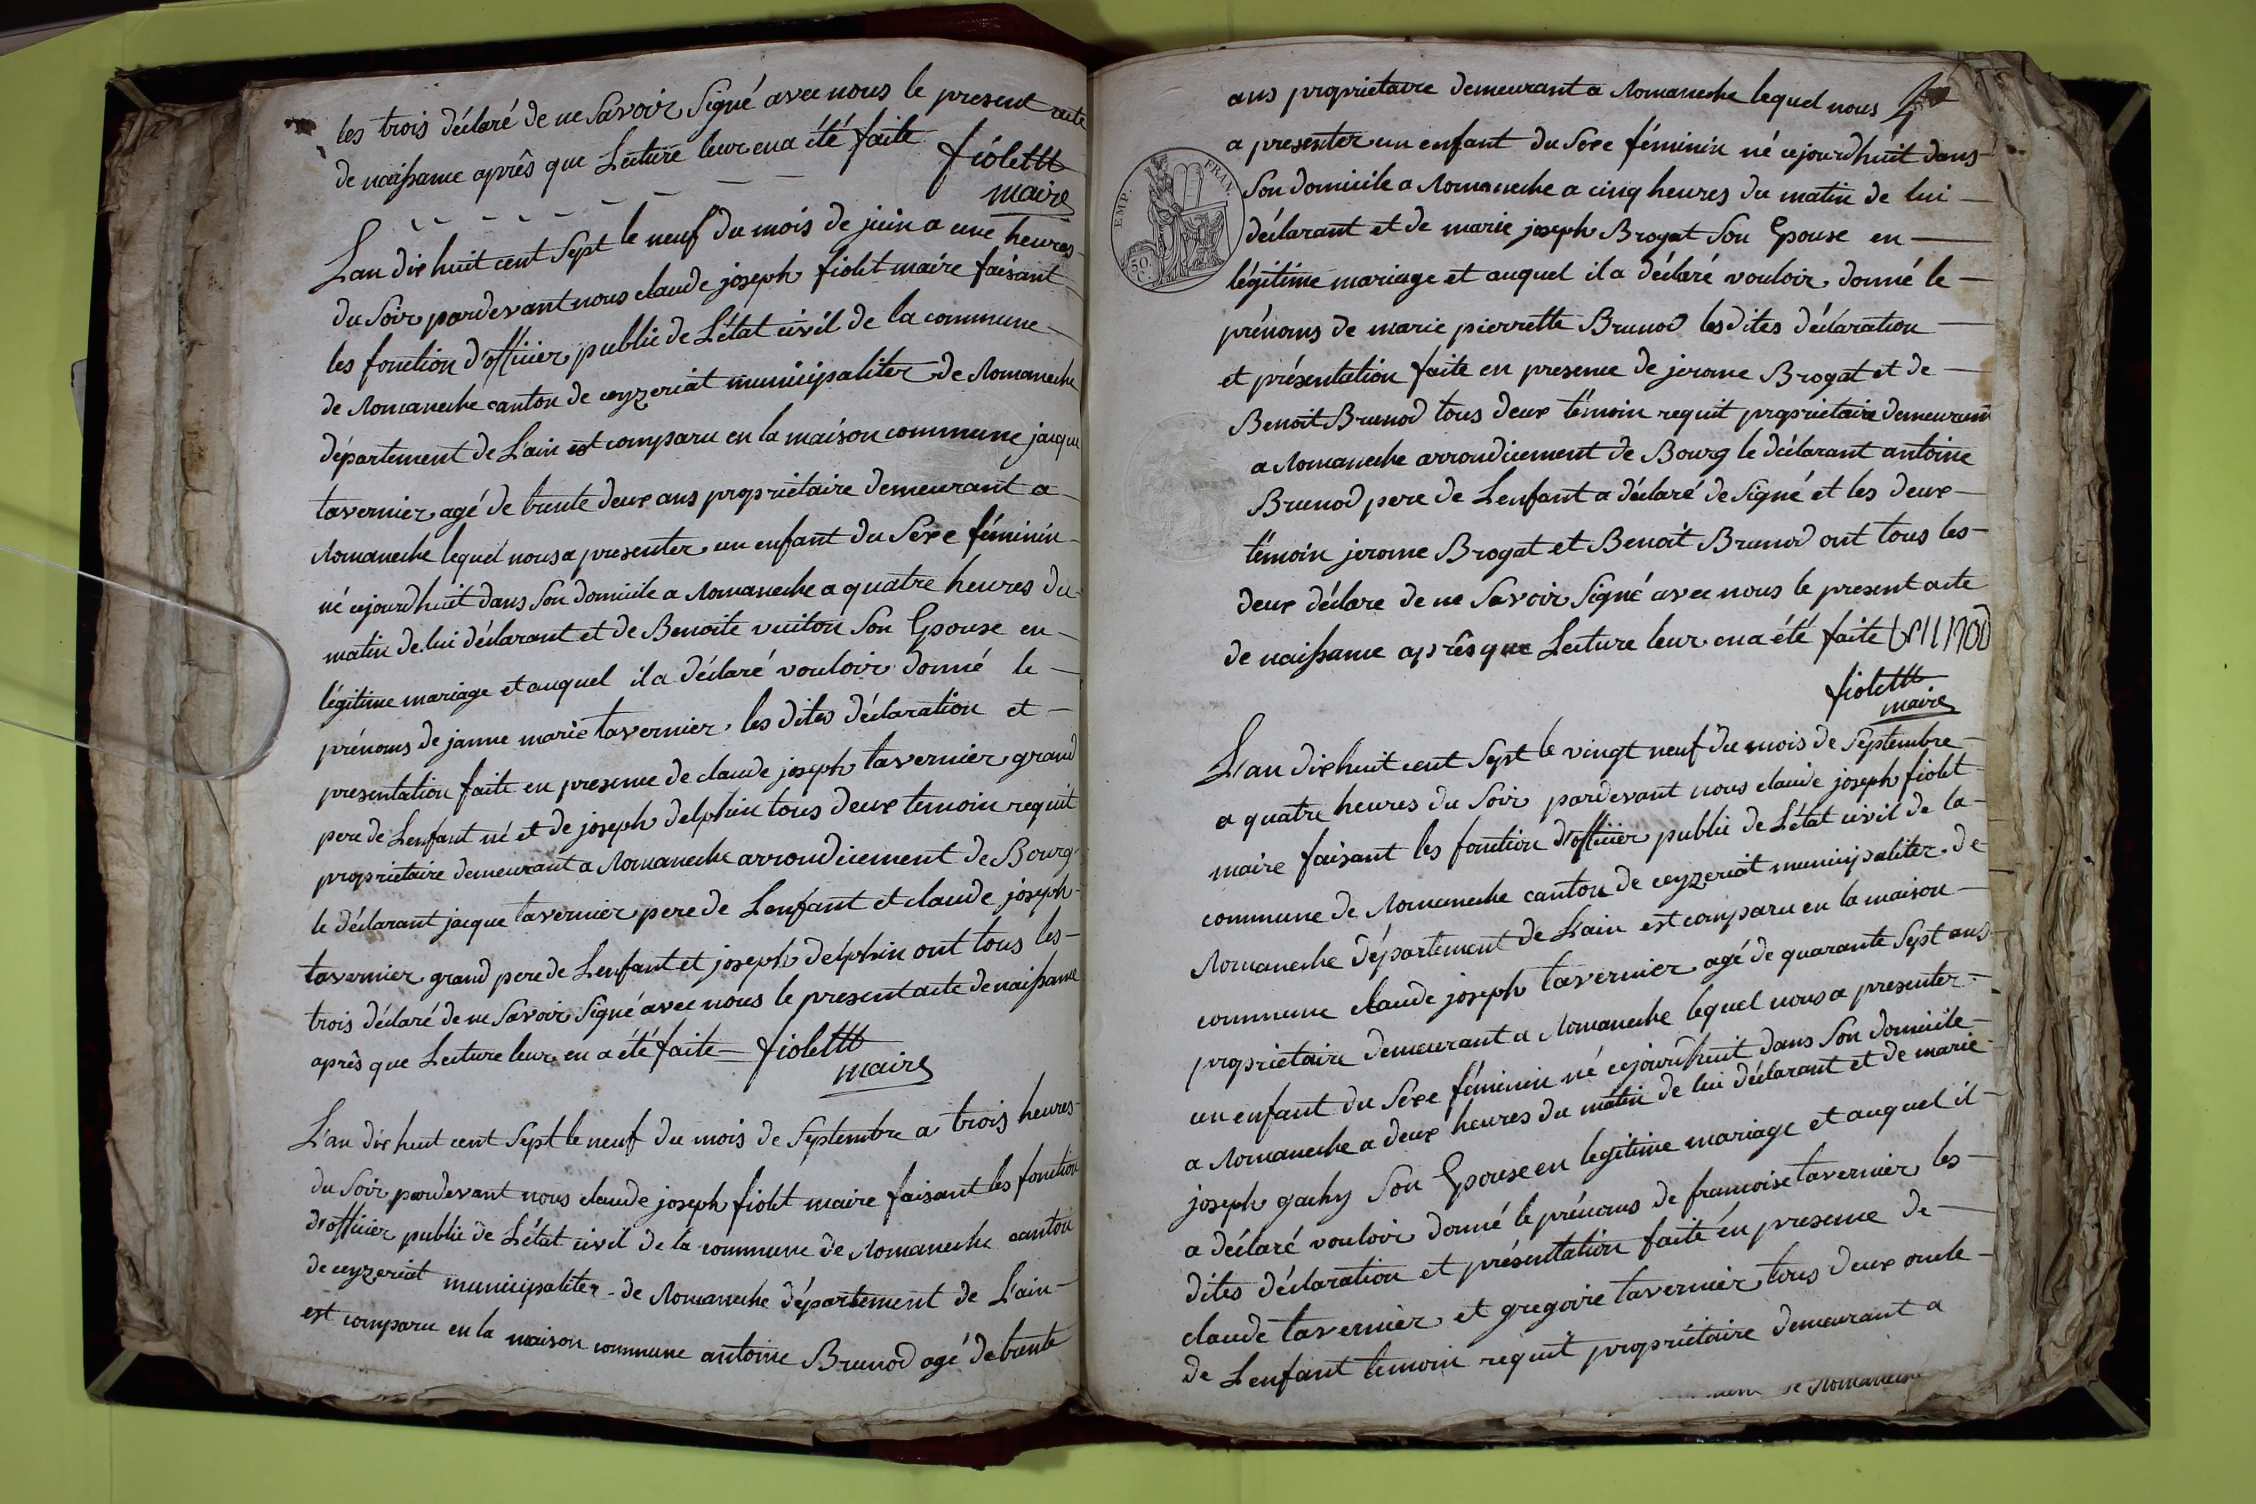 les trois déclaré de ne Savoir Signé avec nous le present acte
de naissance aprês que Lecture leur en a été faite fiolet
maire
Lan dix huit cent Sept le neuf du mois de juin a une heures
du Soir pardevant nous claude joseph fiolet maire faisant
les fonction d'officier public de L'état civil de la commune
de Romaneche canton de ceyzeriat municipaliter de Romaneche
département de L'ain est comparu en la maison commune jacque
tavernier agé de trente deux ans proprietaire demeurant a
Romaneche lequel nous a presenter un enfant du Sexe féminin
né cejourdhuit dans Son domicile a Romaneche a quatre heures du
matin de lui déclarant et de Benoite vuiton Son Epouse en
légitime mariage et auquel il a déclaré vouloir donné le
prénoms de janne marie tavernier les dites déclaration et
presentation faite en presence de claude joseph tavernier grand
pere de Lenfant né et de joseph delphin tous deux temoin requit
proprietaire demeurant a Romaneche arrondicement de Bourg
le déclarant jacque tavernier pere de Lenfant et claude joseph
tavernier grand pere de Lenfant et joseph delphin ont tous les
trois déclaré de ne Savoir Signé avec nous le present acte de naissance
aprês que Lecture leur en a été faite fiolet
maire
L'an dix huit cent Sept le neuf du mois de Septembre a trois heures
du Soir pardevant nous claude joseph fiolet maire faisant les fonction
d'officier public de L'état civil de la commune de Romaneche canton
de ceyzeriat municipaliter de Romaneche département de L'ain
est comparu en la maison commune antoine Brunod agé de trente
ans proprietaire demeurant a Romaneche lequel nous
a presenter un enfant du Sexe féminin né cejourdhuit dans
EMP. FRAN.
50 C.
Son domicile a Romaneche a cinq heures du matin de lui
déclarant et de marie joseph Brogat Son Epouse en
légitime mariage et auquel il a déclaré vouloir donné le
prénoms de marie pierrette Brunod les dites déclaration
et présentation faite en presence de jerome Brogat et de
Benoit Brunod tous deux témoin requit proprietaire demeurant
a Romaneche arrondicement de Bourg le déclarant antoine
Brunod pere de Lenfant a déclaré de Signé et les deux
témoin jerome Brogat et Benoit Brunod ont tous les
deux déclare de ne Savoir Signé avec nous le present acte
de naissance aprês que Lecture leur en a été faite brunod
fiolet
maire
L'an dix huit cent Sept le vingt neuf du mois de Septembre
a quatre heures du Soir pardevant nous claude joseph fiolet
maire faisant les fonction d'officier public de L'état civil de la
commune de Romaneche canton de ceyzeriat municipaliter de
Romaneche département de L'ain est comparu en la maison
commune claude joseph tavernier agé de quarante Sept ans
proprietaire demeurant a Romaneche lequel nous a presenter
un enfant du Sexe féminin né cejourdhuit dans Son domicile
a Romaneche a deux heures du matin de lui déclarant et de marie
joseph gachy Son Epouse en legitime mariage et auquel il
a déclaré vouloir donné le prénoms de francoise tavernier les
dites déclaration et présentation faite en presence de
claude tavernier et gregoire tavernier tous deux oncle
de Lenfant temoin requit propriétaire demeurant a
de Romaneche